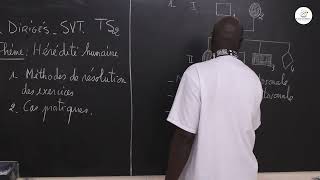 Dirigés_ SVT. TS2
Thème: Hérédité humaine
1. Méthodes de resolution
des exercices
2. Cas pratiques.
I
II